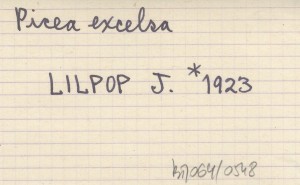 Picea excelsa
LILPOP J. *1923
/064/0548